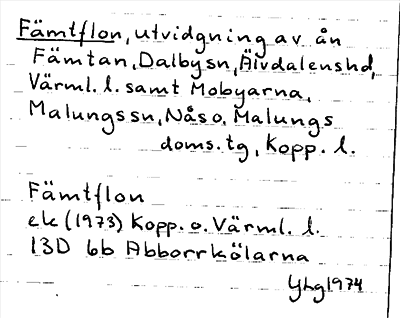 Fämtflon, utvidgning av ån
Fämtan, Dalbysn, Älvdalenshd,
Värml. l. samt Mobyarna,
Malungssn, Nås o. Malungs
doms.tg, Kopp. l.
Fämtflon
ek (1973) Kopp. o. Värml. l.
13D 6b Abborrkölarna
YHg 1974